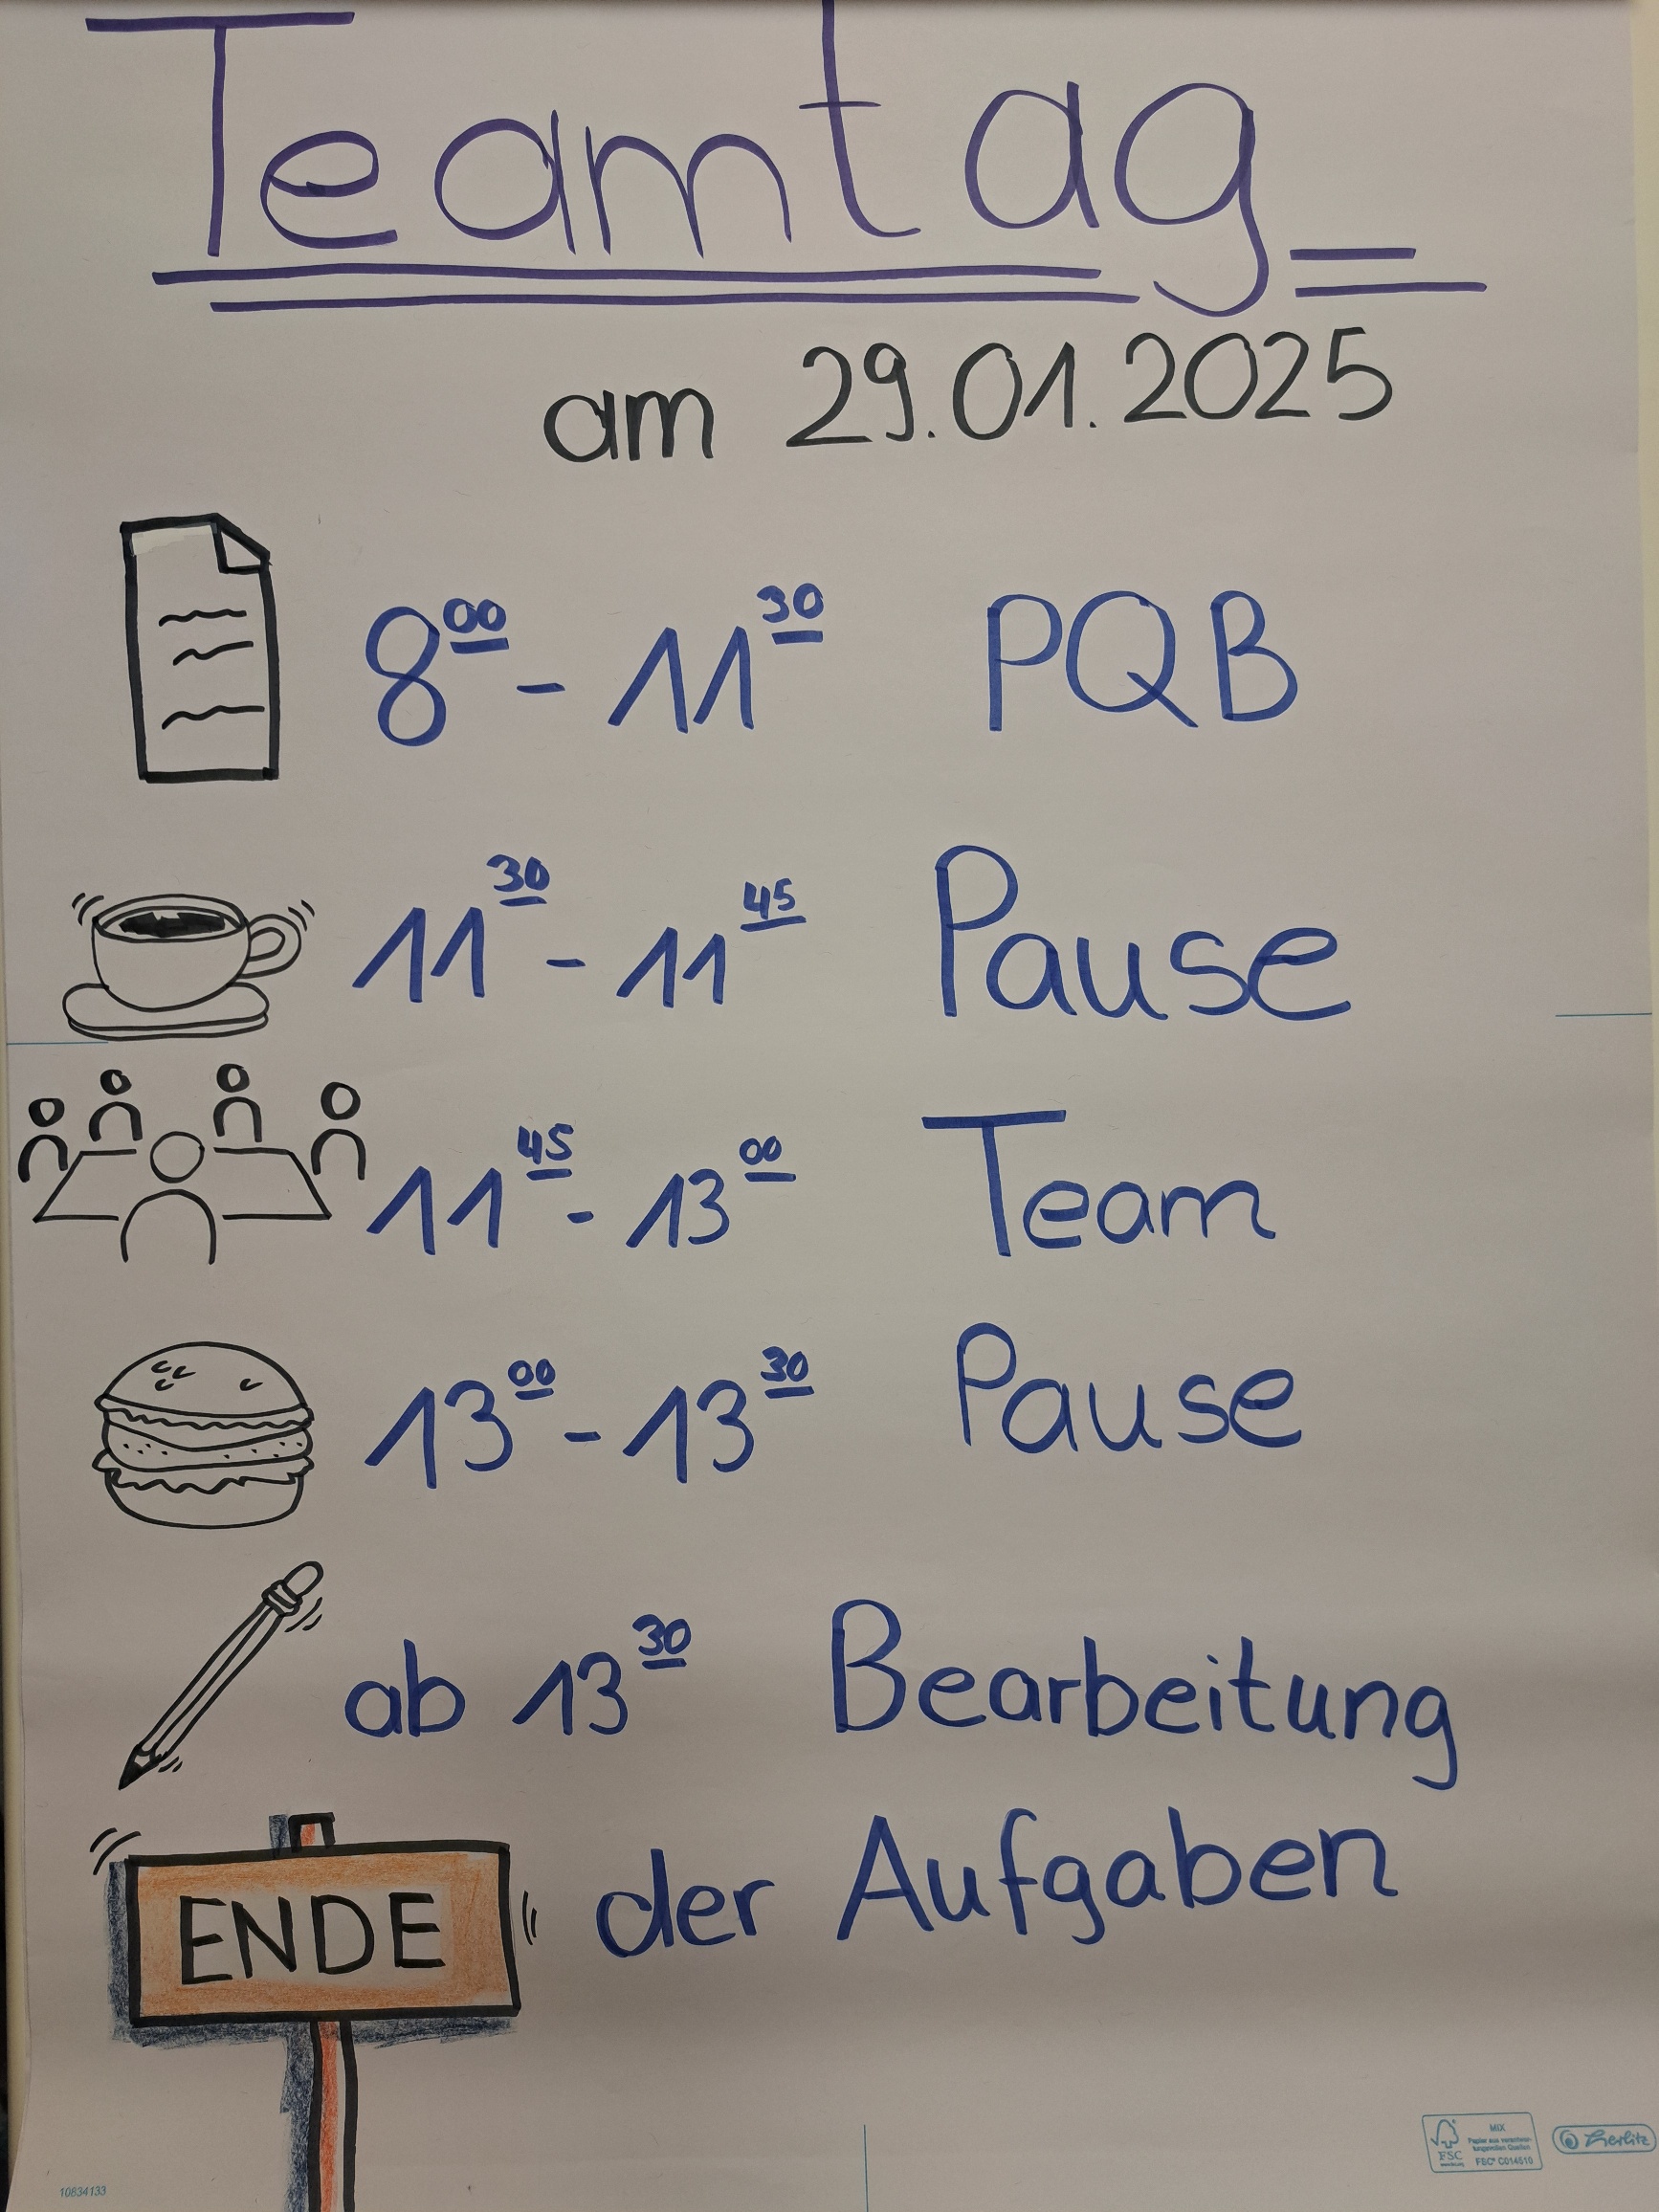 Teamtag
am 29.01.2025
8⁰⁰ - 11³⁰ PQB
11³⁰ - 11⁴⁵ Pause
11⁴⁵ - 13⁰⁰ Team
13⁰⁰ - 13³⁰ Pause
ab 13³⁰ Bearbeitung
der Aufgaben
ENDE
MIX
Papier aus verantwor-
tungsvollen Quellen
FSC
FSC® C014510
herlitz
10834133